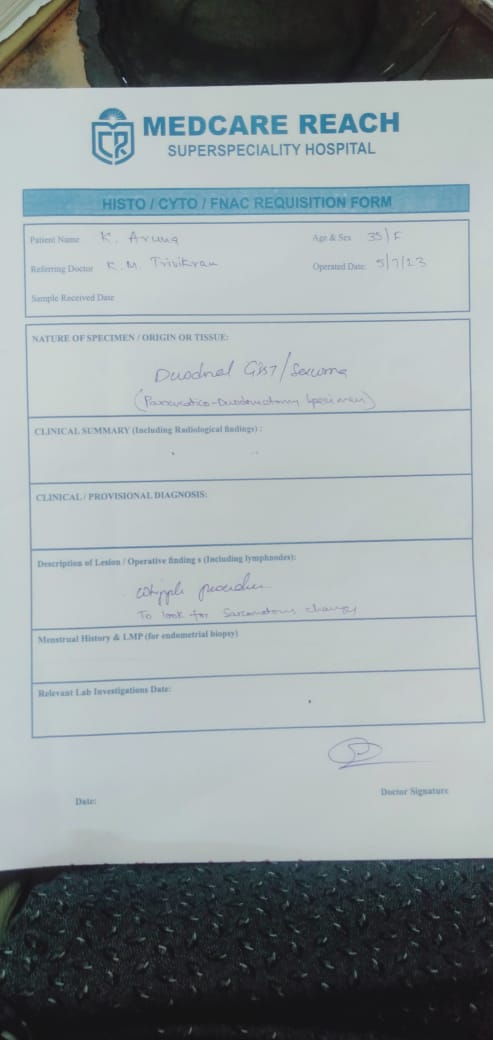 MEDCARE REACH
SUPERSPECIALITY HOSPITAL
HISTO / CYTO / FNAC REQUISITION FORM
Patient Name K. Aruna Age & Sex 35/F
Referring Doctor K.M. Trivikram Operated Date: 5/7/23
Sample Received Date
NATURE OF SPECIMEN / ORIGIN OR TISSUE:
Duodnel GIST/Sarcoma
(Pancreatico-Duodenectomy Specimen)
CLINICAL SUMMARY (Including Radiological findings) :
CLINICAL / PROVISIONAL DIAGNOSIS:
Description of Lesion / Operative finding s (Including lymphnodes):
Whipple procedure
To look for Sarcomatous changes
Menstrual History & LMP (for endometrial biopsy)
Relevant Lab Investigations Date:
Date:
Doctor Signature